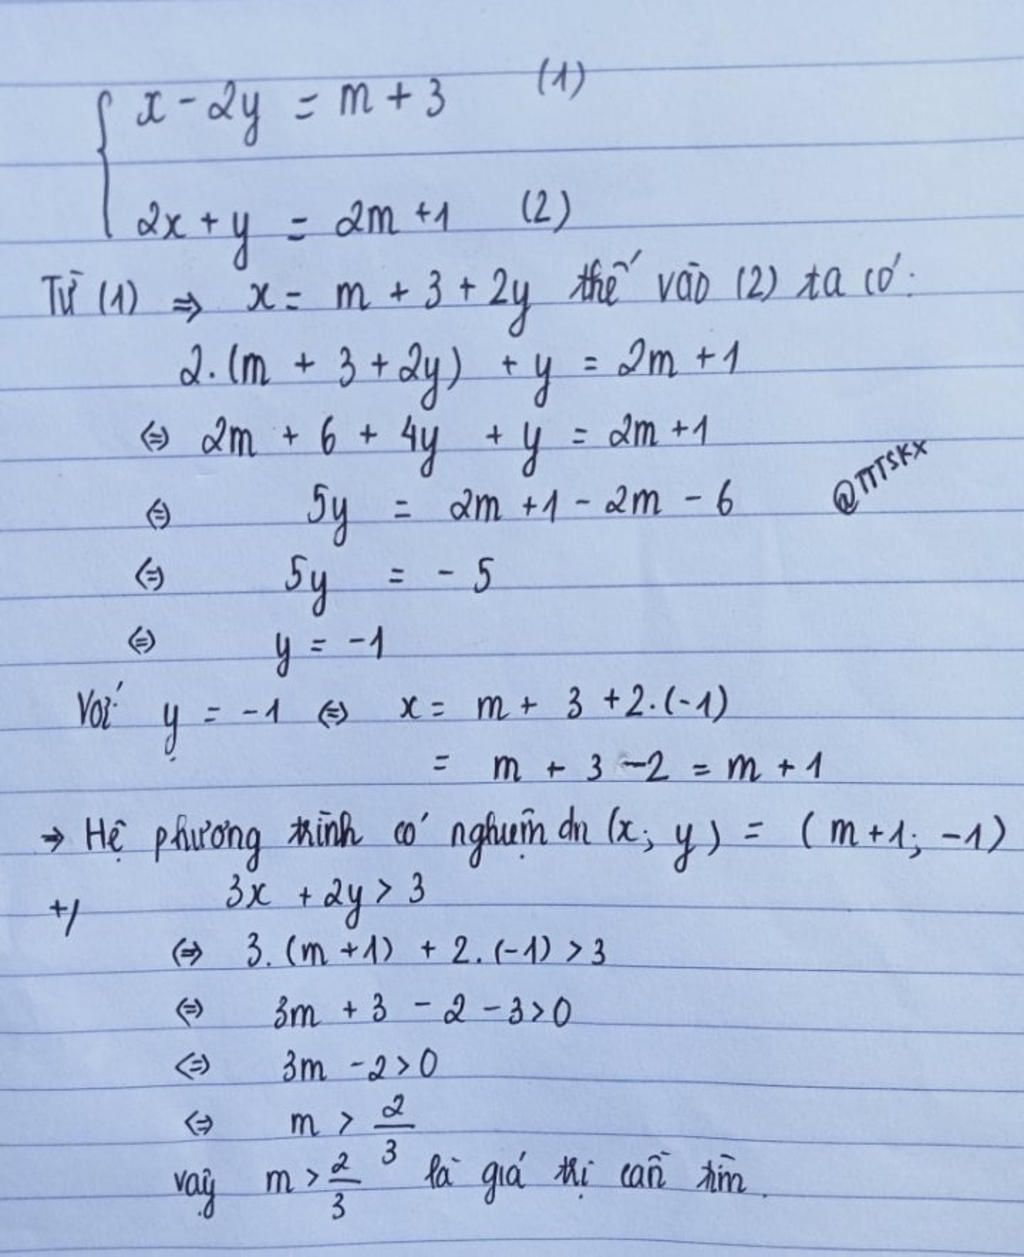 x - 2y = m + 3 (1)
2x + y = 2m + 1 (2)
Từ (1) => x = m + 3 + 2y thế vào (2) ta có:
2.(m + 3 + 2y) + y = 2m + 1
<=> 2m + 6 + 4y + y = 2m + 1
@TTTSKX
<=> 5y = 2m + 1 - 2m - 6
<=> 5y = - 5
<=> y = -1
Với y = -1 <=> x = m + 3 + 2.(-1)
= m + 3 - 2 = m + 1
→ Hệ phương trình có nghiệm dn (x; y) = (m+1; -1)
+/ 3x + 2y > 3
<=> 3.(m + 1) + 2.(-1) > 3
<=> 3m + 3 - 2 - 3 > 0
<=> 3m - 2 > 0
<=> m > 2/3
vậy m > 2/3 là giá trị cần tìm.